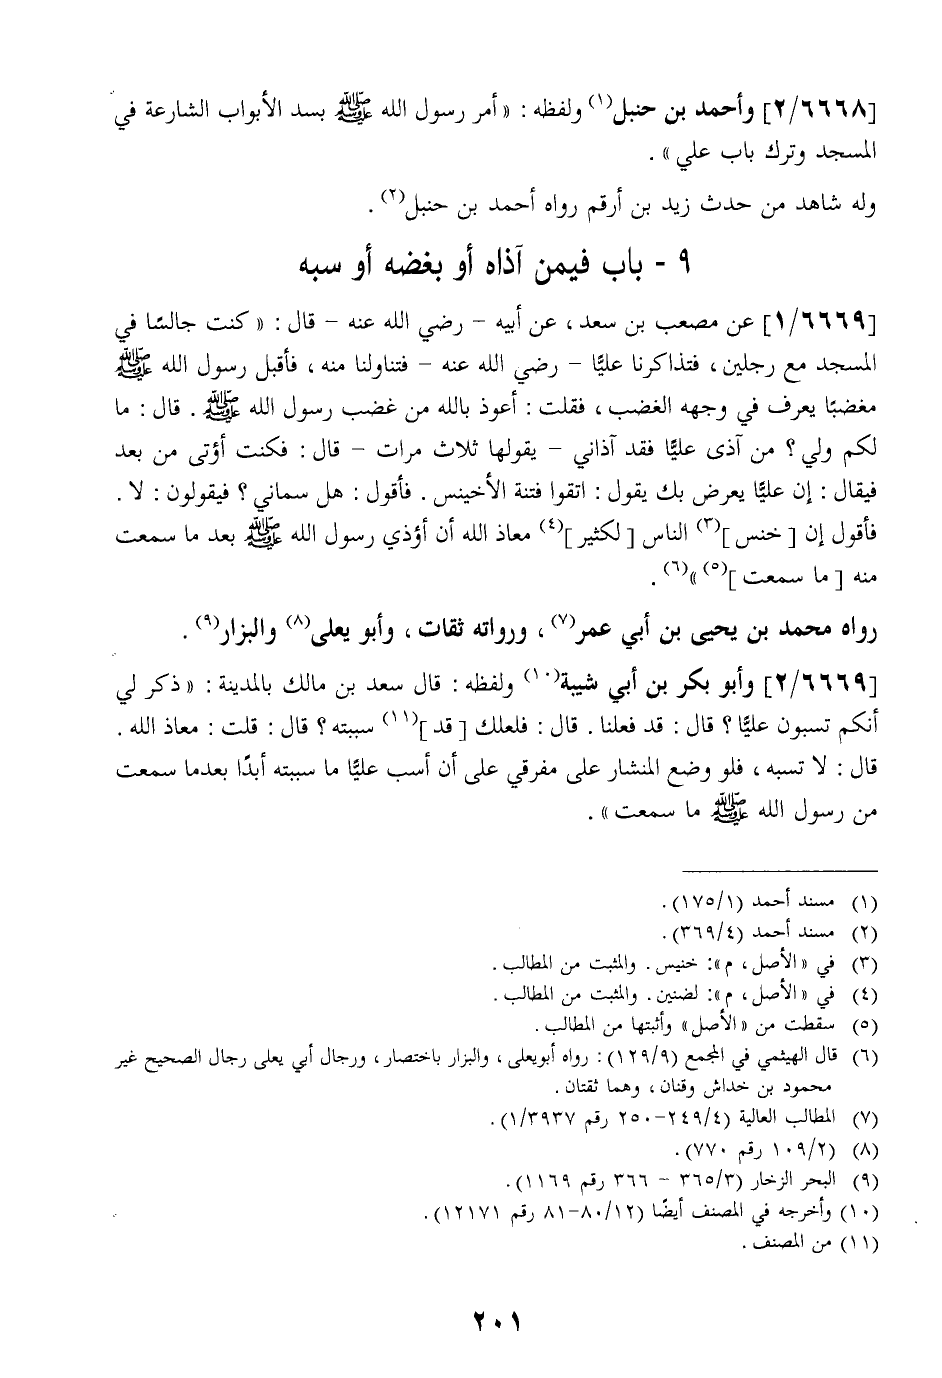 [٢/٦٦٦٨] وأحمد بن حنبل(١) ولفظه : « أمر رسول الله ﷺ بسد الأبواب الشارعة في
المسجد وترك باب علي » .
وله شاهد من حدث زيد بن أرقم رواه أحمد بن حنبل(٢) .
٩ - باب فيمن آذاه أو بغضه أو سبه
[١/٦٦٦٩] عن مصعب بن سعد ، عن أبيه – رضي الله عنه – قال : « كنت جالسًا في
المسجد مع رجلين ، فتذاكرنا عليًّا – رضي الله عنه – فتناولنا منه ، فأقبل رسول الله ﷺ
مغضبًا يعرف في وجهه الغضب ، فقلت : أعوذ بالله من غضب رسول الله ﷺ . قال : ما
لكم ولي ؟ من آذى عليًّا فقد آذاني – يقولها ثلاث مرات – قال : فكنت أؤتى من بعد
فيقال : إن عليًّا يعرض بك يقول : اتقوا فتنة الأخينس . فأقول : هل سماني ؟ فيقولون : لا .
فأقول إن [ خنس ](٣) الناس [ لكثير ](٤) معاذ الله أن أؤذي رسول الله ﷺ بعد ما سمعت
منه [ ما سمعت ](٥) »(٦) .
رواه محمد بن يحيى بن أبي عمر(٧) ، ورواته ثقات ، وأبو يعلى(٨) والبزار(٩) .
[٢/٦٦٦٩] وأبو بكر بن أبي شيبة(١٠) ولفظه : قال سعد بن مالك بالمدينة : « ذكر لي
أنكم تسبون عليًّا ؟ قال : قد فعلنا . قال : فلعلك [ قد ](١١) سببته ؟ قال : قلت : معاذ الله .
قال : لا تسبه ، فلو وضع المنشار على مفرقي على أن أسب عليًّا ما سببته أبدًا بعدما سمعت
من رسول الله ﷺ ما سمعت » .
(١) مسند أحمد (١٧٥/١) .
(٢) مسند أحمد (٣٦٩/٤) .
(٣) في « الأصل ، م » : خنيس . والمثبت من المطالب .
(٤) في « الأصل ، م » : لضنين . والمثبت من المطالب .
(٥) سقطت من « الأصل » وأثبتها من المطالب .
(٦) قال الهيثمي في المجمع (١٢٩/٩) : رواه أبويعلى ، والبزار باختصار ، ورجال أبي يعلى رجال الصحيح غير
محمود بن خداش وقنان ، وهما ثقتان .
(٧) المطالب العالية (٢٤٩/٤-٢٥٠ رقم ١/٣٩٣٧) .
(٨) (١٠٩/٢ رقم ٧٧٠) .
(٩) البحر الزخار (٣٦٥/٣ – ٣٦٦ رقم ١١٦٩) .
(١٠) وأخرجه في المصنف أيضًا (٨٠/١٢-٨١ رقم ١٢١٧١) .
(١١) من المصنف .
٢٠١